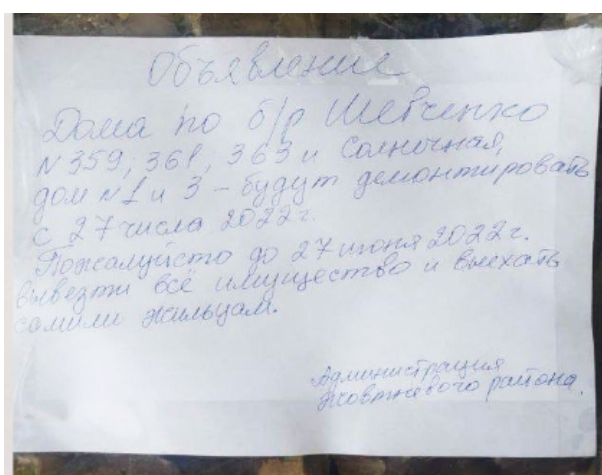 Объявление
Дома по б/р Шевченко
N 359, 361, 363 и Солнечная,
дом N1 и 3 – будут демонтировать
с 27 числа 2022 г.
Пожалуйсто до 27 июня 2022 г.
вывезти всё имущество и выехать
самими жильцам.
Администрация
Жовтневого района.